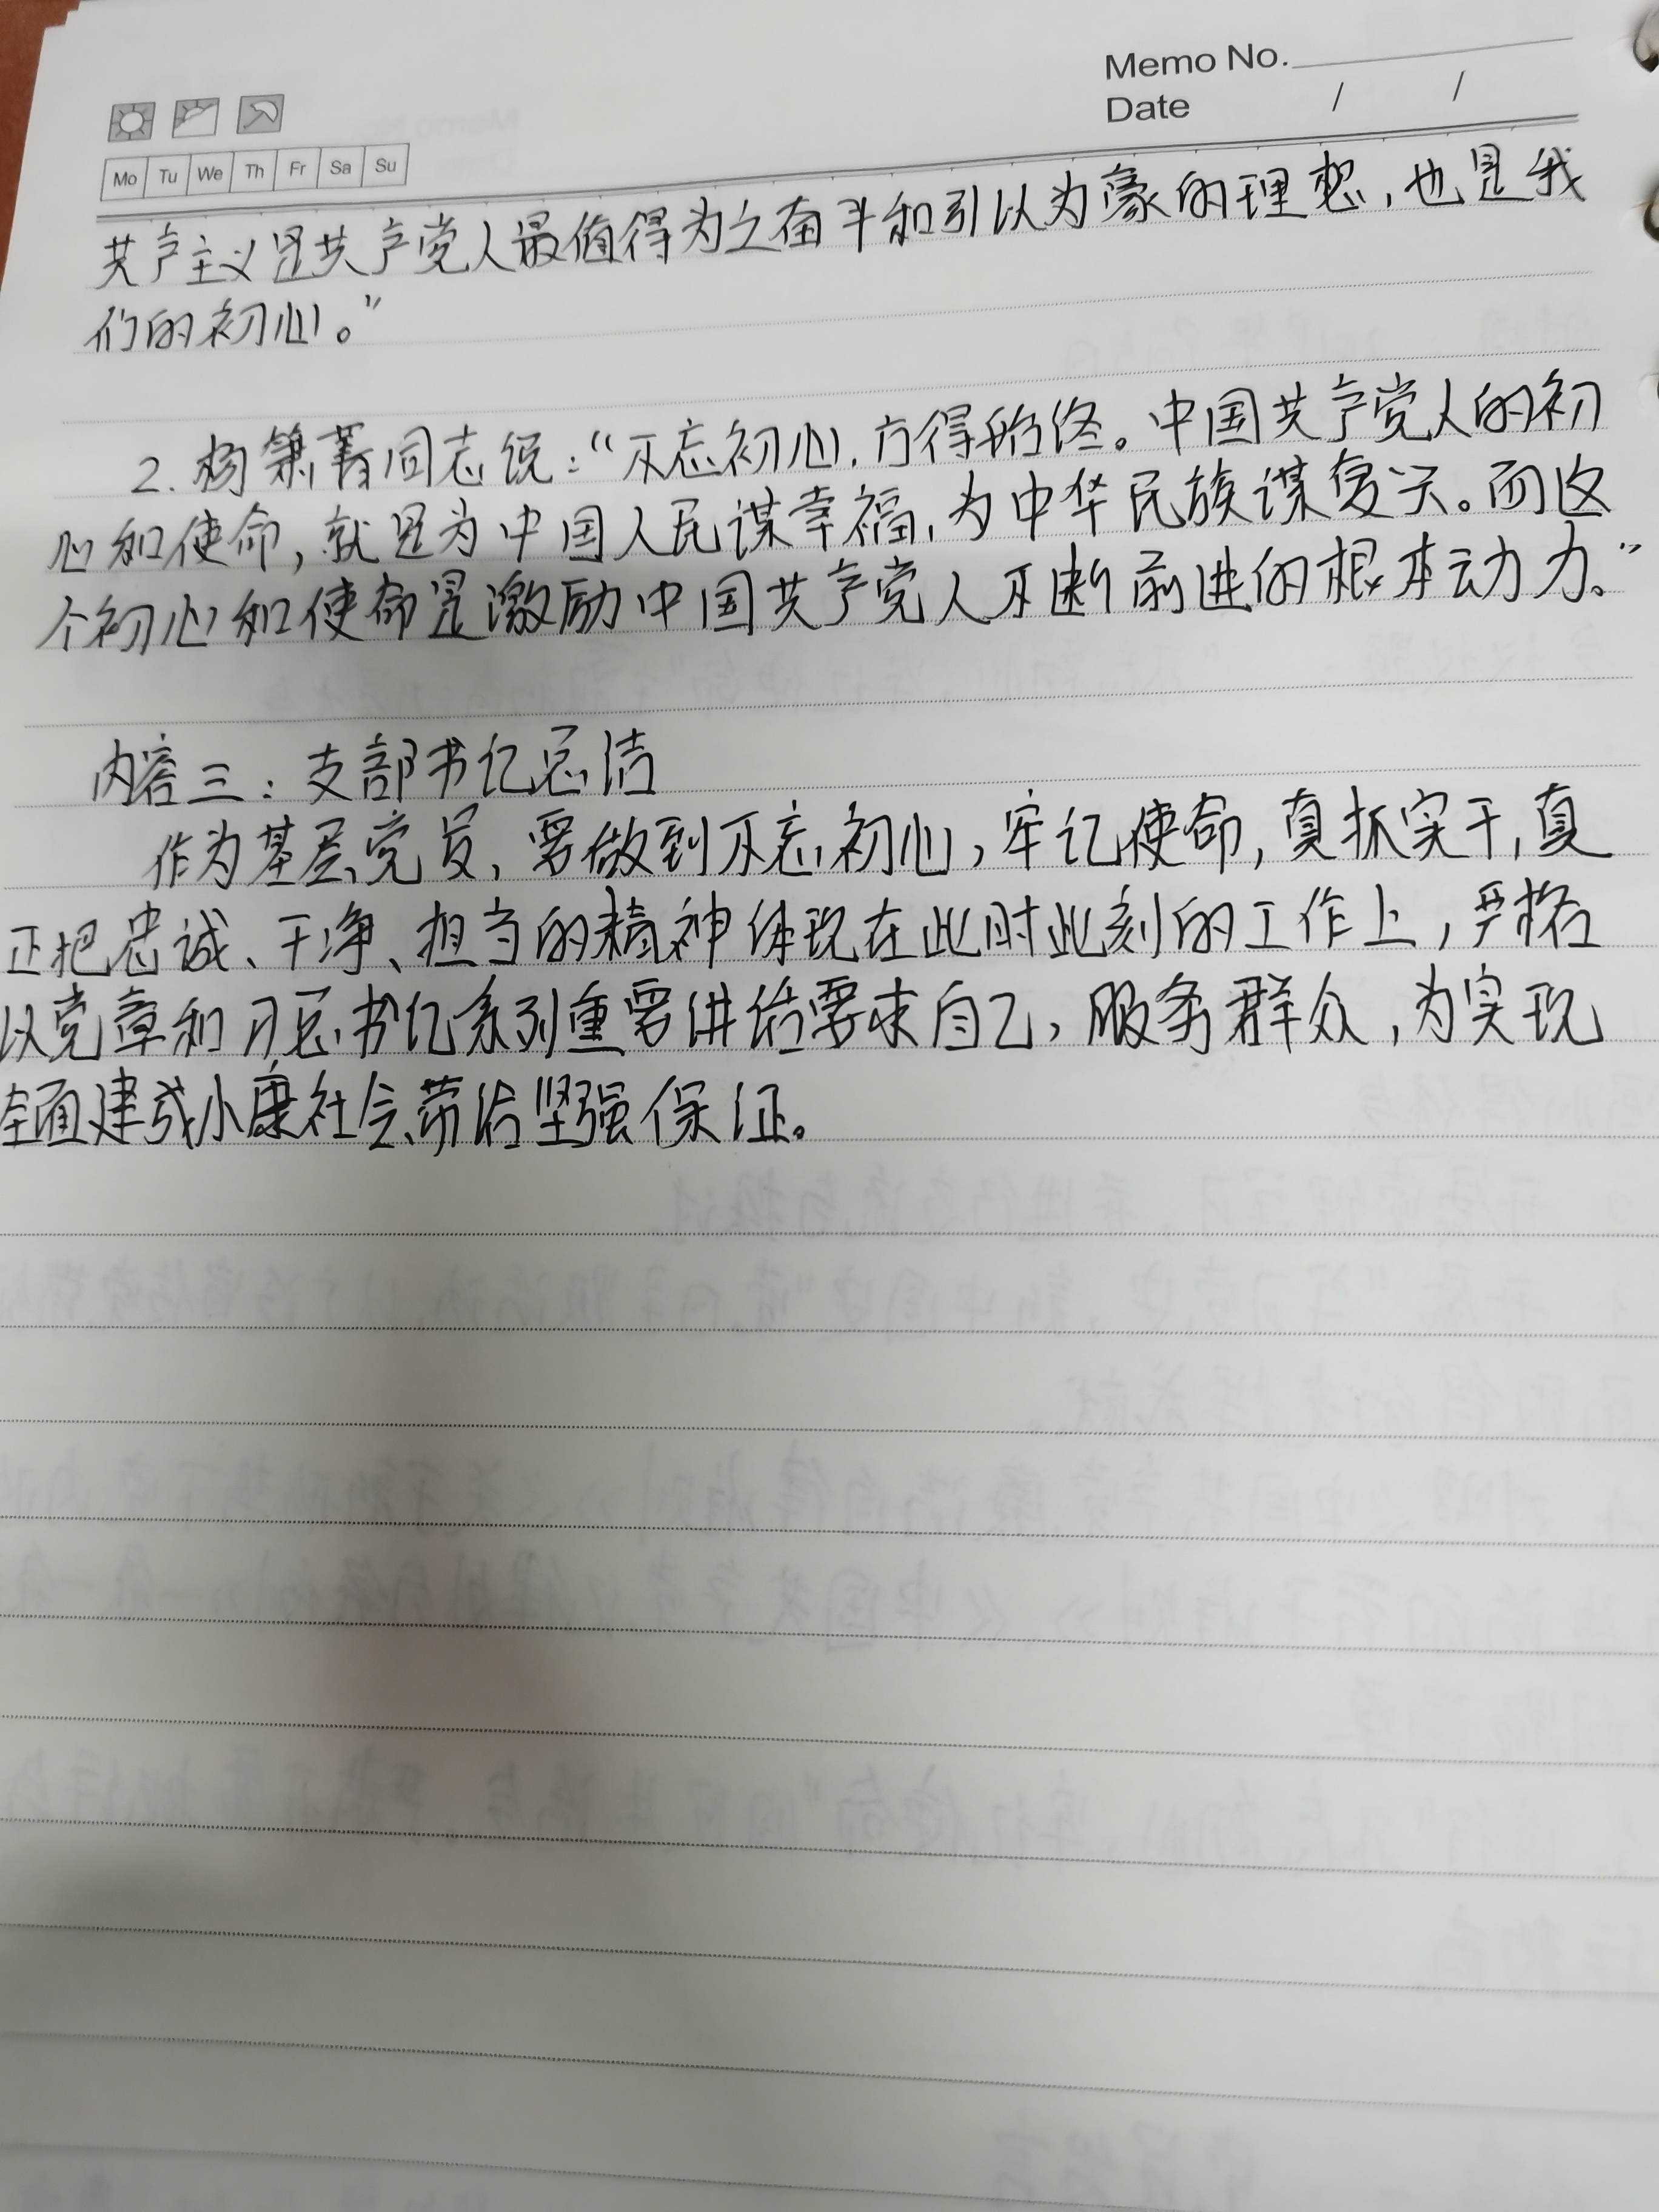 Memo No.
Date / /
Mo Tu We Th Fr Sa Su
共产主义是共产党人最值得为之奋斗和引以为豪的理想，也是我
们的初心。”
2. 杨箫菁同志说：“不忘初心，方得始终。中国共产党人的初
心和使命，就是为中国人民谋幸福，为中华民族谋复兴。而这
个初心和使命是激励中国共产党人不断前进的根本动力。”
内容三：支部书记总结
作为基层党员，要做到不忘初心，牢记使命，真抓实干，真
正把忠诚、干净、担当的精神体现在此时此刻的工作上，严格
以党章和习总书记系列重要讲话要求自己，服务群众，为实现
全面建成小康社会带给坚强保证。